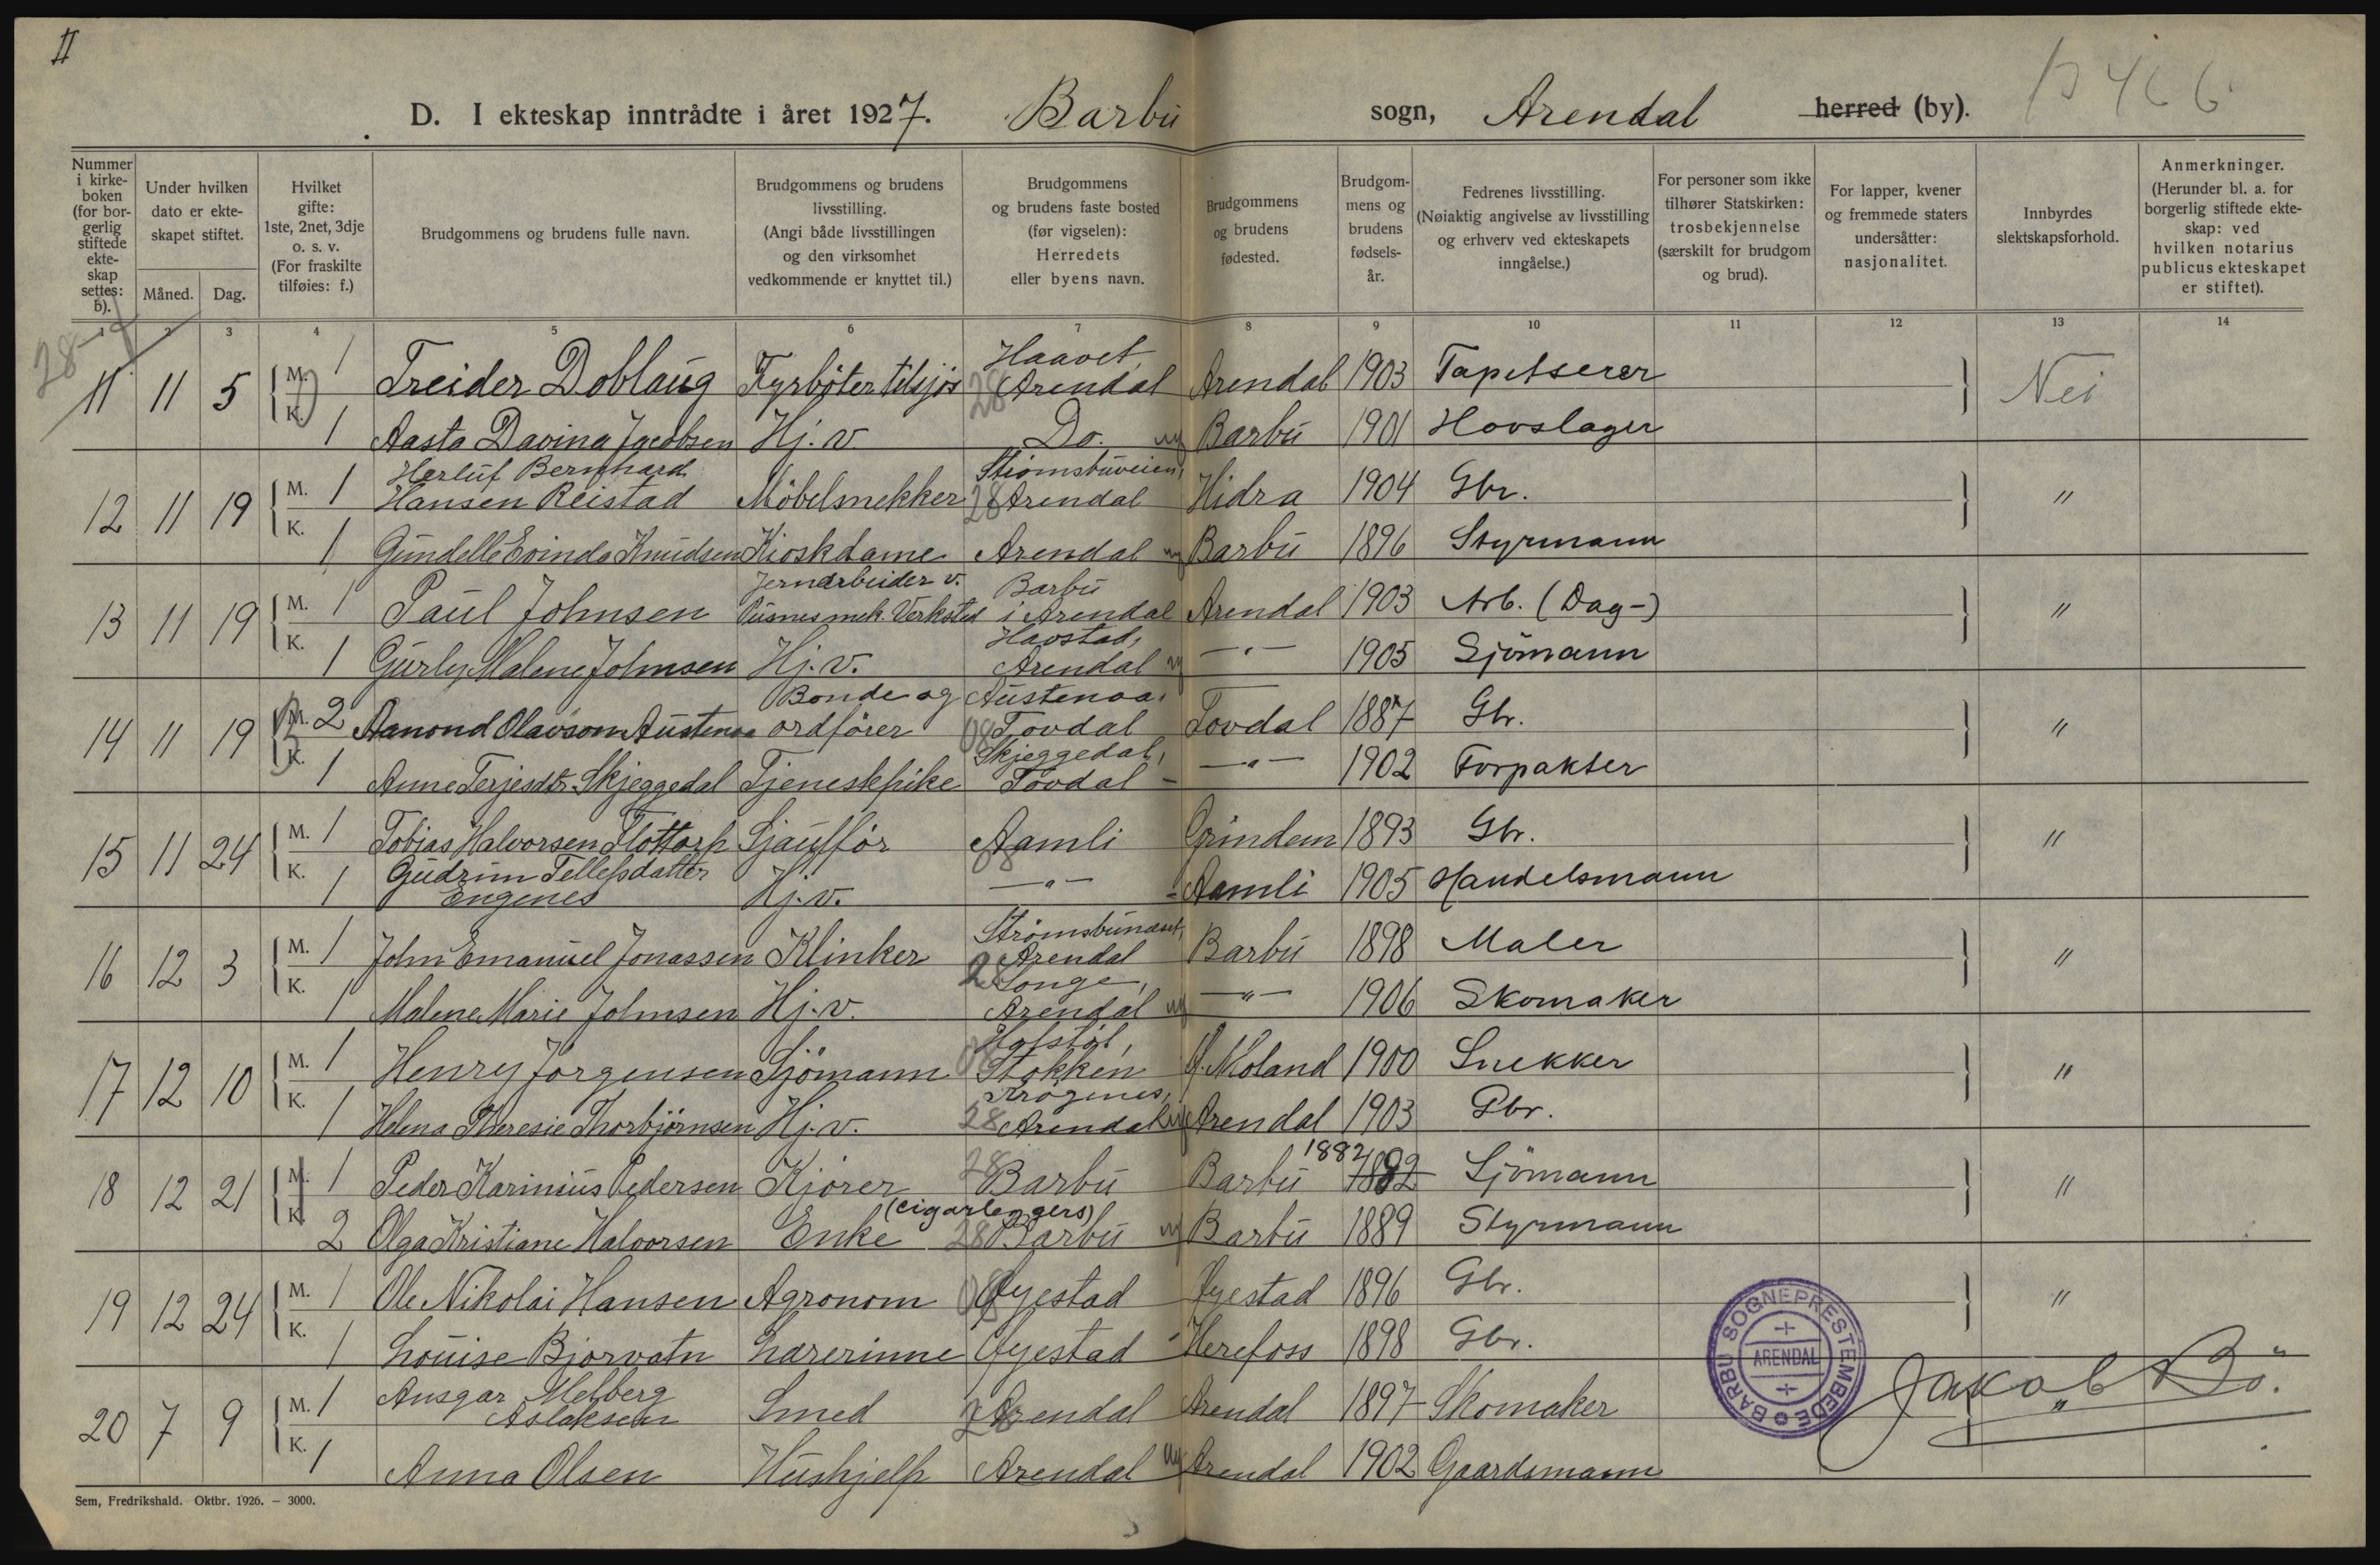 II
D. I ekteskap inntrådte i året 1927. Barbu sogn, Arendal herred (by).
Nummer i kirkeboken (for borgerlig stiftede ekteskap settes: b).
Under hvilken dato er ekteskapet stiftet.
Måned. Dag.
Hvilket gifte: 1ste, 2net, 3dje o. s. v. (For fraskilte tilføies: f.)
Brudgommens og brudens fulle navn.
Brudgommens og brudens livsstilling. (Angi både livsstillingen og den virksomhet vedkommende er knyttet til.)
Brudgommens og brudens faste bosted (før vigselen): Herredets eller byens navn.
Brudgommens og brudens fødested.
Brudgommens og brudens fødselsår.
Fedrenes livsstilling. (Nøiaktig angivelse av livsstilling og erhverv ved ekteskapets inngåelse.)
For personer som ikke tilhører Statskirken: trosbekjennelse (særskilt for brudgom og brud).
For lapper, kvener og fremmede staters undersåtter: nasjonalitet.
Innbyrdes slektskapsforhold.
Anmerkninger. (Herunder bl. a. for borgerlig stiftede ekteskap: ved hvilken notarius publicus ekteskapet er stiftet).
1 2 3 4 5 6 7 8 9 10 11 12 13 14
11 11 5 M. 1 Treider Doblaug Fyrbøter tilsjøs Haavet, Arendal 28 Arendal 1903 Tapetserer Nei
K. 1 Aasta Davina Jacobsen Hj. v Do. Barbu 1901 Hovslager
12 11 19 M. 1 Herluf Bernhard Hansen Reistad Möbelsnekker Strömsbuveien, 28 Arendal Hidra 1904 Gbr. "
K. 1 Gundelle Evinda Knudsen Kioskdame Arendal Barbu 1896 Styrmann
13 11 19 M. 1 Paul Johnsen Jernarbeider v. Pusnes mek. Verksted Barbu i Arendal Arendal 1903 Arb. (Dag-) "
K. 1 Gurly Malene Johnsen Hj. v. Havstad, Arendal —"— 1905 Sjömann
14 11 19 M. 2 Aanond Olavson Austenaa Bonde og ordförer Austenaa, 08 Tovdal Tovdal 1887 Gbr. "
K. 1 Anne Terjesdtr. Skjeggedal Tjenestepike Skjeggedal, Tovdal —"— 1902 Forpakter
15 11 24 M. 1 Tobias Halvorsen Flottorp Sjauffør Aamli 08 Grindem 1893 Gbr. "
K. 1 Gudrun Tellefsdatter Engenes Hj. v. —"— Aamli 1905 Handelsmann
16 12 3 M. 1 John Emanuel Jonassen Klinker Strömsbuneset, Arendal 28 Barbu 1898 Maler "
K. 1 Malene Marie Johnsen Hj. v. Songe, Arendal —"— 1906 Skomaker
17 12 10 M. 1 Henry Jørgensen Sjömann Stokken 08 A. Moland 1900 Snekker "
K. 1 Helena Theresie Thorbjørnsen Hj. v. Krøgenes, 28 Arendal Arendal 1903 Gbr.
18 12 21 M. 1 Peder Karinius Pedersen Kjører 28 Barbu Barbu 1882 Sjömann "
K. 2 Olga Kristiane Halvorsen Enke (cigarleggers) 28 Barbu Barbu 1889 Styrmann
19 12 24 M. 1 Ole Nikolai Hansen Agronom 08 Øyestad Øyestad 1896 Gbr. "
K. 1 Louise Bjorvatn Lærerinne Øyestad Herefoss 1898 Gbr.
20 7 9 M. 1 Ansgar Melberg Aslaksen Smed 28 Arendal Arendal 1897 Skomaker "
K. 1 Anna Olsen Hushjelp Arendal Arendal 1902 Gaardsmann
BARBU SOGNEPRESTEMBEDE
ARENDAL
Jakob Bö.
Sem, Fredrikshald. Oktbr. 1926. — 3000.